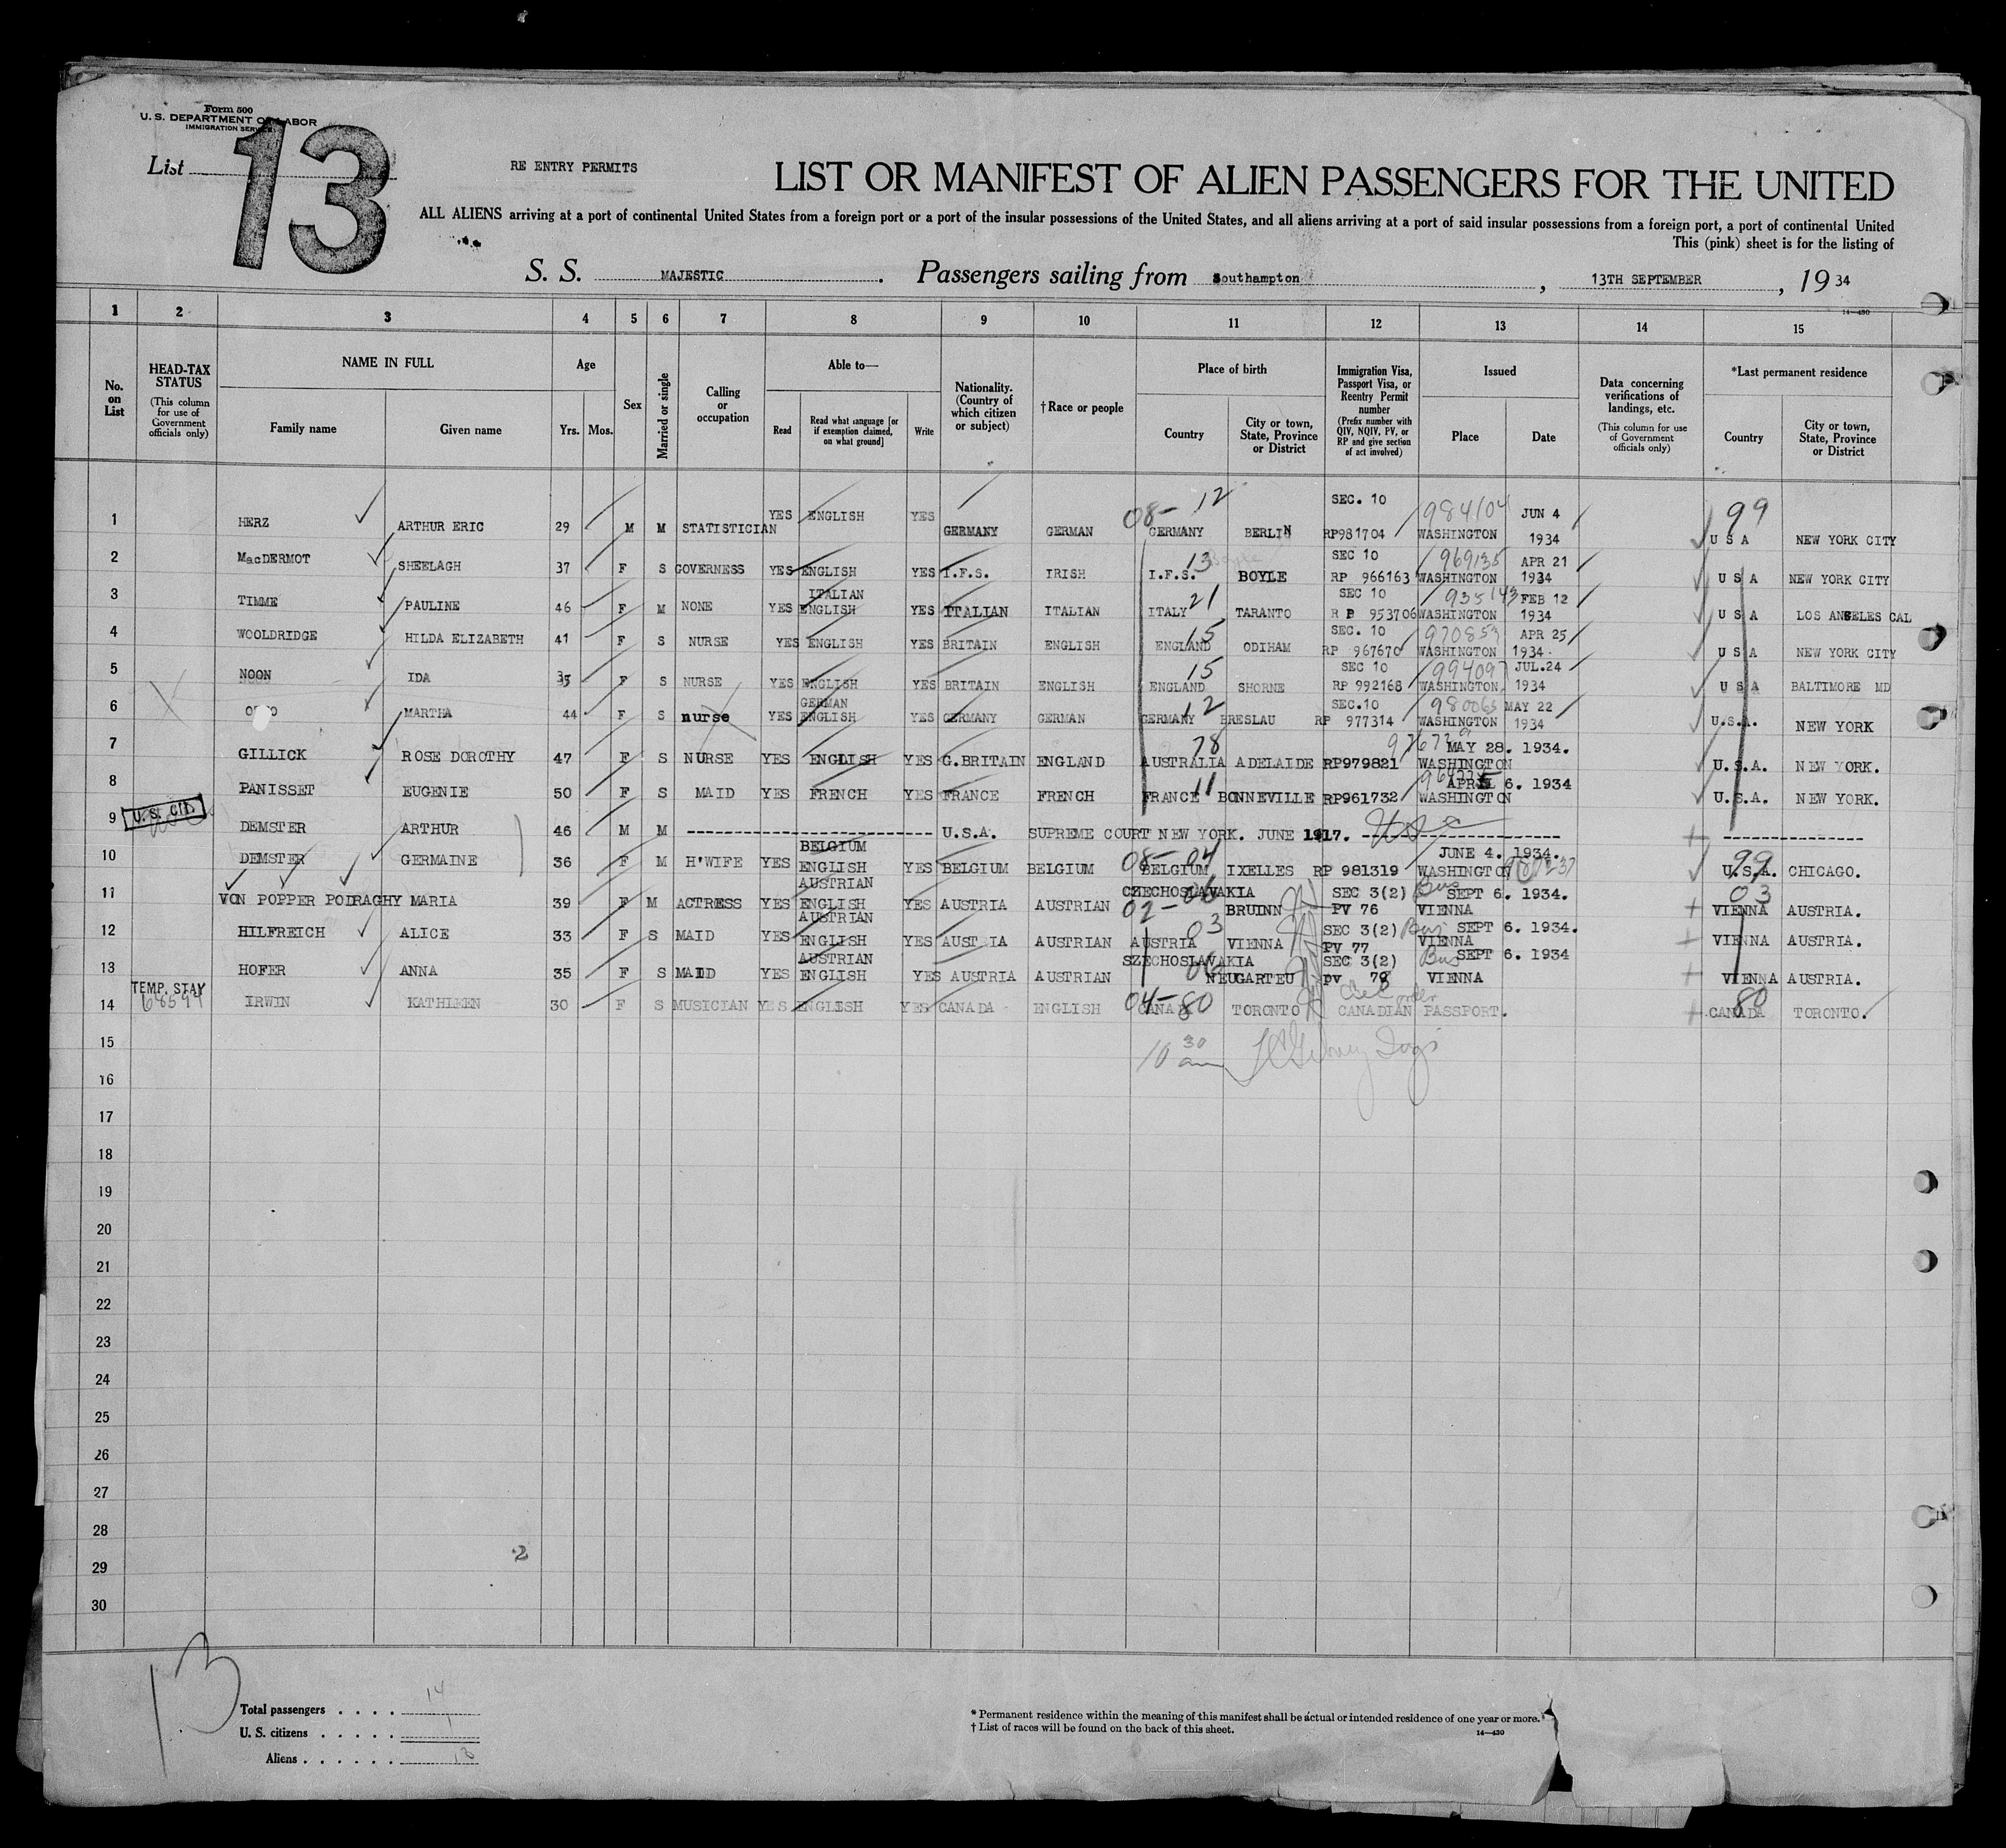 Form 500
U. S. DEPARTMENT OF LABOR
IMMIGRATION SERVICE
List 13
RE ENTRY PERMITS
LIST OR MANIFEST OF ALIEN PASSENGERS FOR THE UNITED
ALL ALIENS arriving at a port of continental United States from a foreign port or a port of the insular possessions of the United States, and all aliens arriving at a port of said insular possessions from a foreign port, a port of continental United
This (pink) sheet is for the listing of
S. S. MAJESTIC. Passengers sailing from Southampton, 13TH SEPTEMBER, 1934
14—430
1 2 3 4 5 6 7 8 9 10 11 12 13 14 15
No. on List
HEAD-TAX STATUS (This column for use of Government officials only)
NAME IN FULL
Family name Given name
Age
Yrs. Mos.
Sex
Married or single
Calling or occupation
Able to—
Read Read what language [or if exemption claimed, on what ground] Write
Nationality. (Country of which citizen or subject)
†Race or people
Place of birth
Country City or town, State, Province or District
Immigration Visa, Passport Visa, or Reentry Permit number (Prefix number with QIV, NQIV, PV, or RP and give section of act involved)
Issued
Place Date
Data concerning verifications of landings, etc. (This column for use of Government officials only)
*Last permanent residence
Country City or town, State, Province or District
1 HERZ ARTHUR ERIC 29 M M STATISTICIAN YES ENGLISH YES GERMANY GERMAN 08- 12 GERMANY BERLIN SEC. 10 RP981704 984104 WASHINGTON JUN 4 1934 99 U S A NEW YORK CITY
2 MacDERMOT SHEELAGH 37 F S GOVERNESS YES ENGLISH YES I.F.S. IRISH 13 I.F.S. BOYLE SEC 10 RP 966163 969135 WASHINGTON APR 21 1934 U S A NEW YORK CITY
3 TIMME PAULINE 46 F M NONE YES ITALIAN ENGLISH YES ITALIAN ITALIAN ITALY 21 TARANTO SEC 10 R P 953706 935143 WASHINGTON FEB 12 1934 U S A LOS ANGELES CAL
4 WOOLDRIDGE HILDA ELIZABETH 41 F S NURSE YES ENGLISH YES BRITAIN ENGLISH 15 ENGLAND ODIHAM SEC. 10 RP 967670 970853 WASHINGTON APR 25 1934. U S A NEW YORK CITY
5 NOON IDA 35 F S NURSE YES ENGLISH YES BRITAIN ENGLISH 15 ENGLAND SHORNE SEC 10 RP 992168 994097 WASHINGTON. JUL.24 1934 U S A BALTIMORE MD
6 MARTHA 44 F S nurse YES GERMAN ENGLISH YES GERMANY GERMAN 12 GERMANY BRESLAU SEC.10 RP 977314 980065 WASHINGTON MAY 22 1934 U.S.A. NEW YORK
7 GILLICK ROSE DOROTHY 47 F S NURSE YES ENGLISH YES G.BRITAIN ENGLAND 78 AUSTRALIA ADELAIDE RP979821 MAY 28. 1934. WASHINGTON U.S.A. NEW YORK.
8 PANISSET EUGENIE 50 F S MAID YES FRENCH YES FRANCE FRENCH FRANCE 11 BONNEVILLE RP961732 APRIL 6. 1934 WASHINGTON U.S.A. NEW YORK.
U.S. CIT.
9 DEMSTER ARTHUR 46 M M U.S.A. SUPREME COURT NEW YORK. JUNE 1917. USC
10 DEMSTER GERMAINE 36 F M H'WIFE YES BELGIUM ENGLISH YES BELGIUM BELGIUM 08- 04 BELGIUM IXELLES RP 981319 JUNE 4. 1934. WASHINGTON 99 U.S.A. CHICAGO.
11 VON POPPER PODRAGHY MARIA 39 F M ACTRESS YES AUSTRIAN ENGLISH YES AUSTRIA AUSTRIAN CZECHOSLAVAKIA 02- 06 BRUINN SEC 3(2) PV 76 Bus SEPT 6. 1934. VIENNA 03 VIENNA AUSTRIA.
12 HILFREICH ALICE 33 F S MAID YES AUSTRIAN ENGLISH YES AUST IA AUSTRIAN 03 AUSTRIA VIENNA SEC 3(2) PV 77 Bus SEPT 6. 1934. VIENNA VIENNA AUSTRIA.
13 HOFER ANNA 35 F S MAID YES AUSTRIAN ENGLISH YES AUSTRIA AUSTRIAN SZECHOSLAVAKIA 06 NEUGARTEU SEC 3(2) pv 78 Bus SEPT 6. 1934 VIENNA VIENNA AUSTRIA.
TEMP. STAY
14 IRWIN KATHLEEN 30 F S MUSICIAN YES ENGLISH YES CANADA ENGLISH 04-80 CANADA TORONTO CANADIAN PASSPORT. 80 CANADA TORONTO.
15 10 30 am
16
17
18
19
20
21
22
23
24
25
26
27
28
29
30
13
Total passengers . . . . 14
U. S. citizens . . . . . 1
Aliens . . . . . . 13
* Permanent residence within the meaning of this manifest shall be actual or intended residence of one year or more.
† List of races will be found on the back of this sheet.
14—430